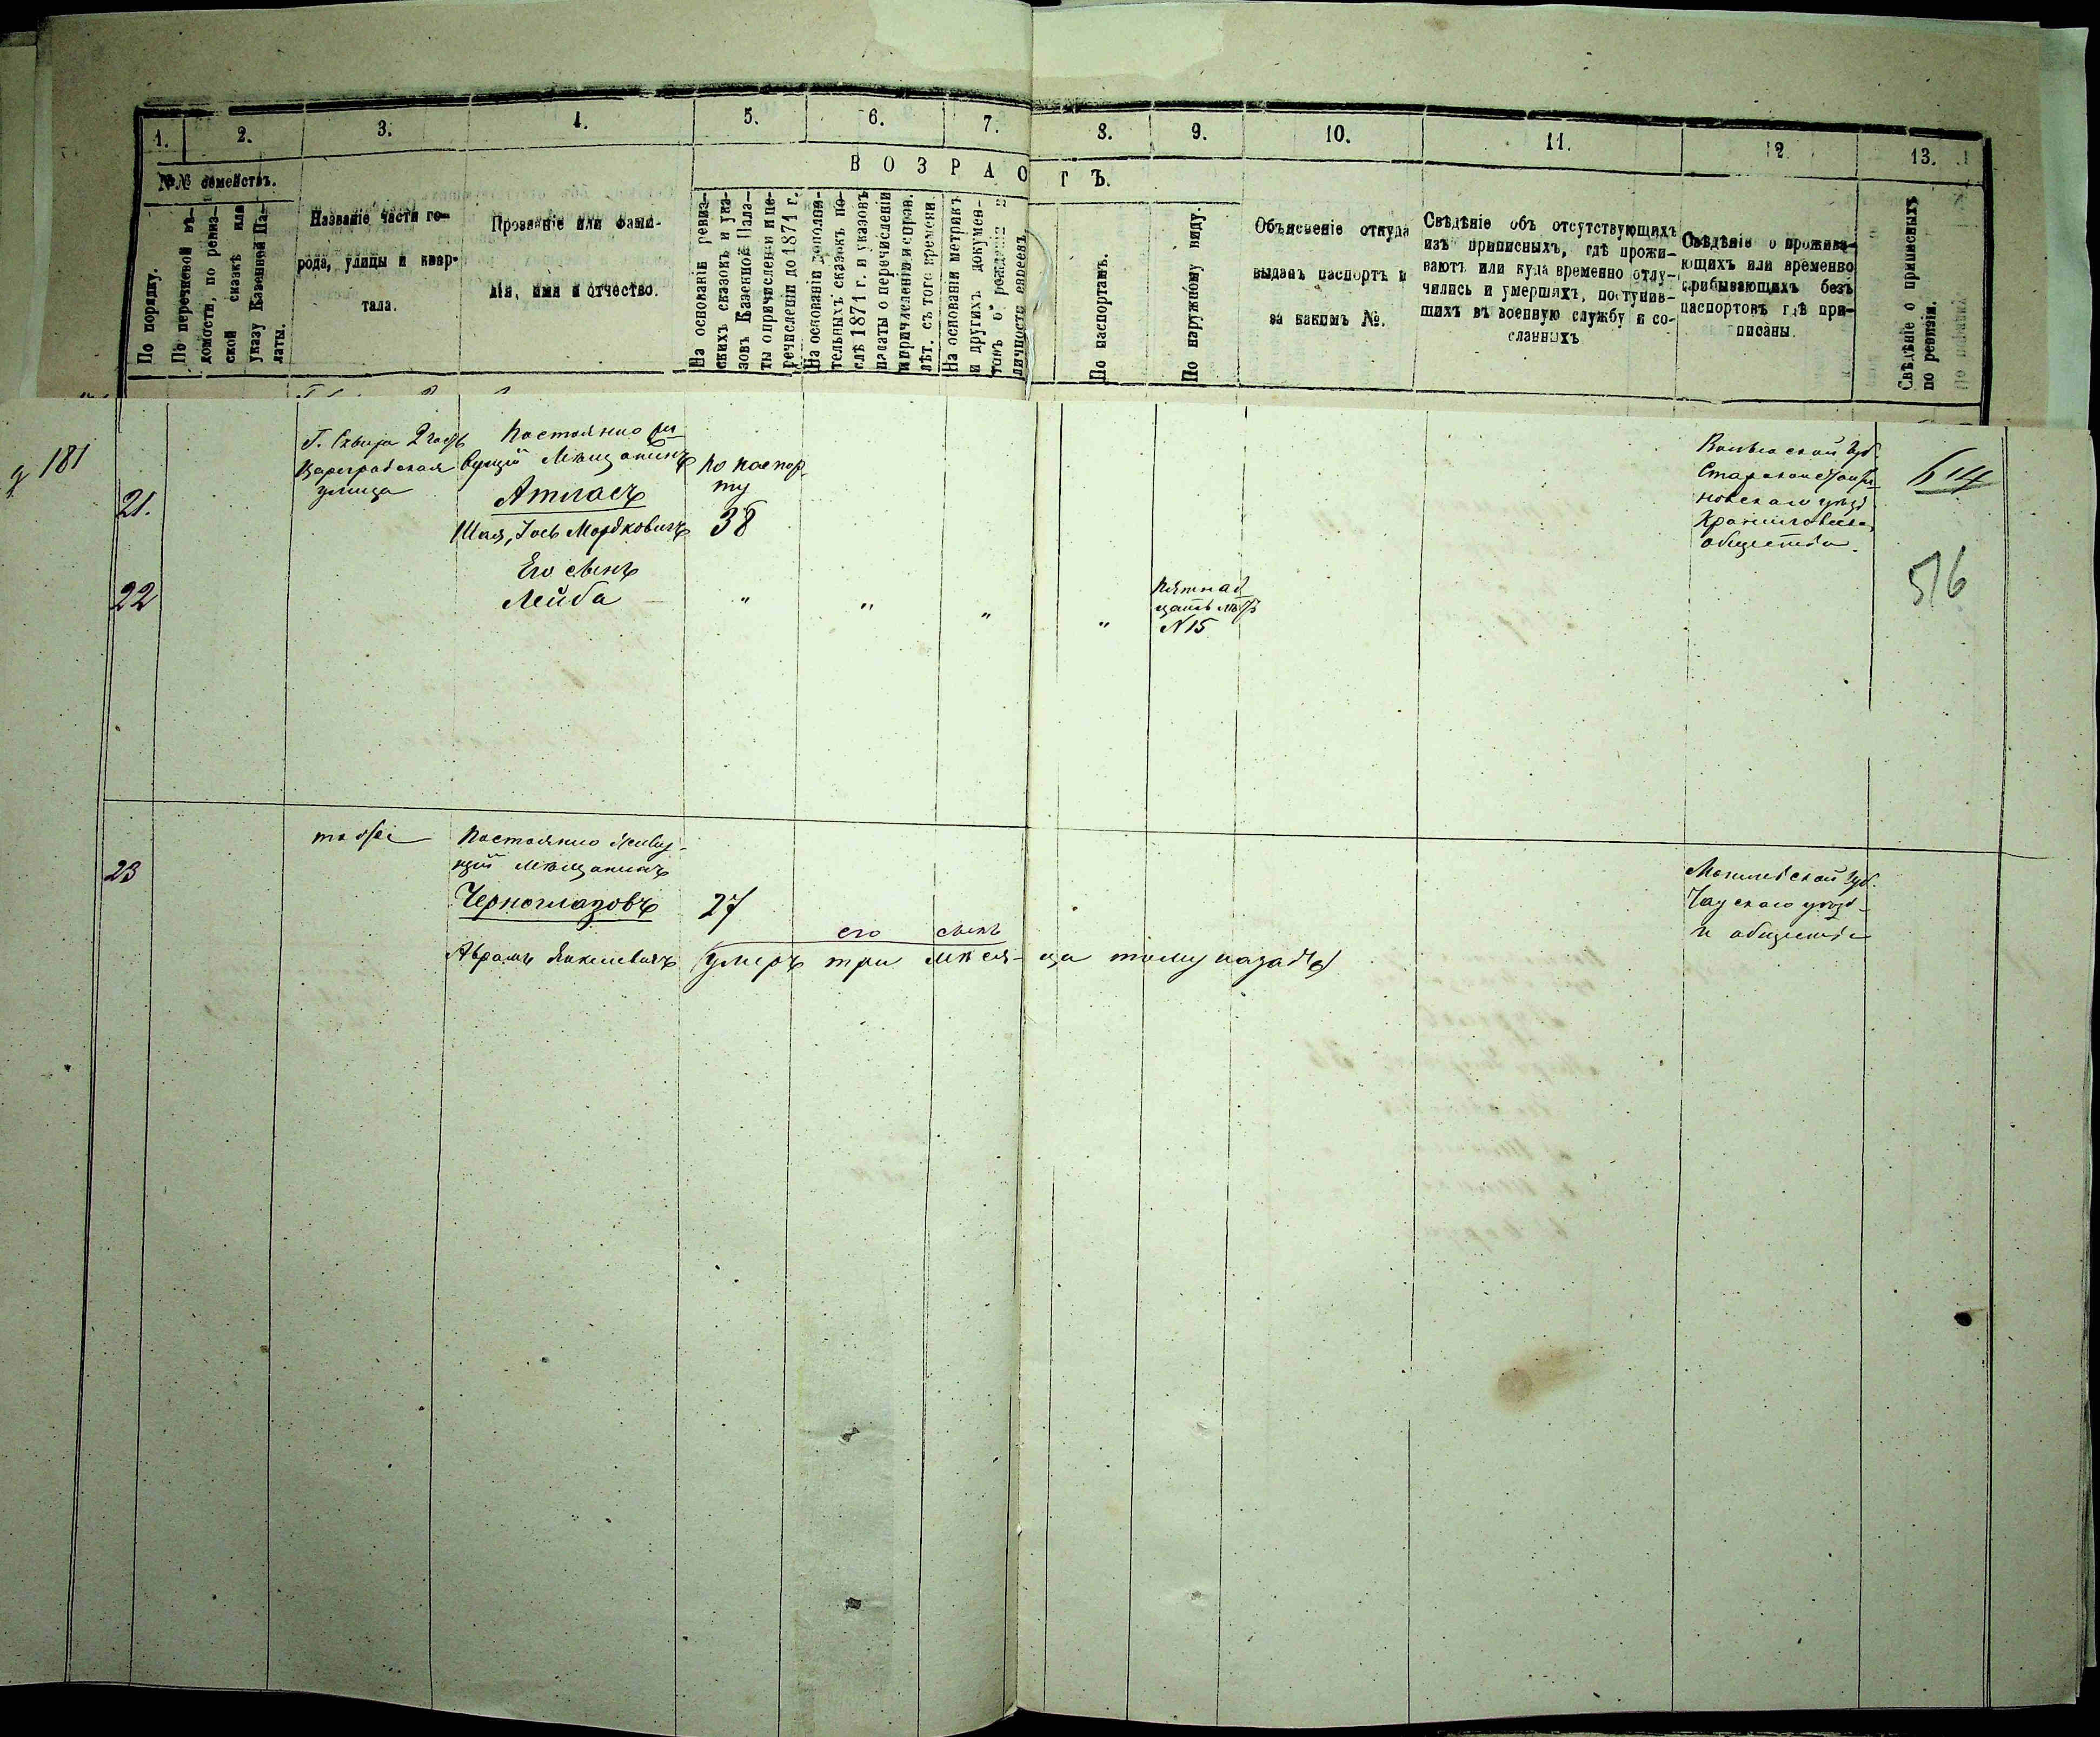 1. 2. 3. 4. 5. 6. 7. 8. 9. 10. 11. 12. 13.
№№ семействъ.
ВОЗРАСТЪ.
По порядку.
По перечневой вѣ-
домости, по ревиз-
ской сказкѣ или
указу Казенной Па-
латы.
Названіе части го-
рода, улицы и квар-
тала.
Прозваніе или фами-
лія, имя и отчество.
На основаніи ревиз-
скихъ сказокъ и ука-
зовъ Казенной Пала-
ты о причисленіи и пе-
речисленіи до 1871 г.
На основаніи дополни-
тельныхъ сказокъ по-
слѣ 1871 г. и указовъ
палаты о перечисленіи
и причисленіи и справ.
лѣт. съ того времени.
На основаніи метрикъ
и другихъ докумен-
товъ о рожденіи и
личности евреевъ.
По паспортамъ.
По наружному виду.
Объясненіе откуда
выданъ паспортъ и
за какимъ №.
Свѣдѣніе объ отсутствующихъ
изъ приписныхъ, гдѣ прожи-
ваютъ или куда временно отлу-
чились и умершихъ, поступив-
шихъ въ военную службу и со-
сланныхъ
Свѣдѣніе о прожива-
ющихъ или временно
прибывающихъ безъ
паспортовъ гдѣ при-
писаны.
Свѣдѣніе о приписныхъ
по ревизіи.
181
21.
Г. Сквира 2 часть
Цареградская
улица
Постоянно жи-
вущій Мѣщанинъ
Атласъ
Шая, Іось Мордковичъ
По паспор-
ту
38
Волынской Губ.
Староконстанти-
новскаго уѣзд
общества.
614
22
Его сынъ
Лейба — " " " "
Пятнад
цать лѣтъ
N 15
516
23
тоже
Постоянно живу-
щій мѣщанинъ
Черноглазовъ 27
его сынъ
Аврамъ Янкелевичъ (умеръ три мѣся- ца тому назадъ)
Могилевской Губ.
Чаускаго уѣзд-
и общества